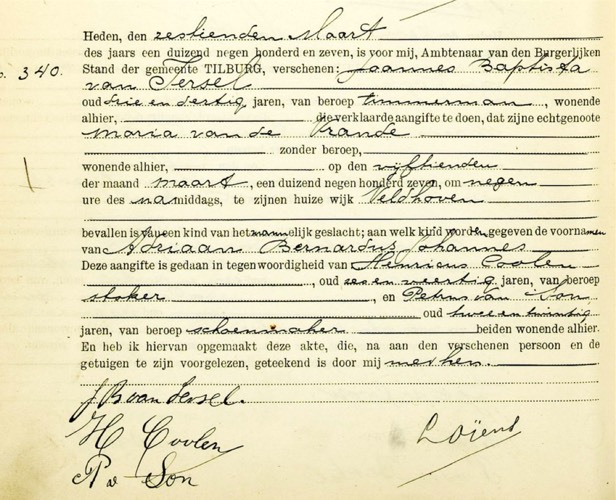 Heden, den zestienden Maart
des jaars een duizend negen honderd en zeven, is voor mij, Ambtenaar van den Burgerlijken
340. Stand der gemeente TILBURG, verschenen: Joannes Baptista
van Iersel
oud drie en dertig jaren, van beroep timmerman, wonende
alhier, die verklaarde aangifte te doen, dat zijne echtgenoote
Maria van de Vrande
zonder beroep,
wonende alhier, op den vijftienden
der maand maart, een duizend negen honderd zeven, om negen
ure des namiddags, te zijnen huize wijk Veldhoven
bevallen is van een kind van het mannelijk geslacht; aan welk kind worden gegeven de voornamen
van Adriaan Bernardus Johannes
Deze aangifte is gedaan in tegenwoordigheid van Henricus Coolen
, oud zes en veertig jaren, van beroep
stoker, en Petrus van Son
oud twee en twintig
jaren, van beroep schoenmaker beiden wonende alhier.
En heb ik hiervan opgemaakt deze akte, die, na aan den verschenen persoon en de
getuigen te zijn voorgelezen, geteekend is door mij met hen.
J B van Iersel.
H Coolen
P v Son